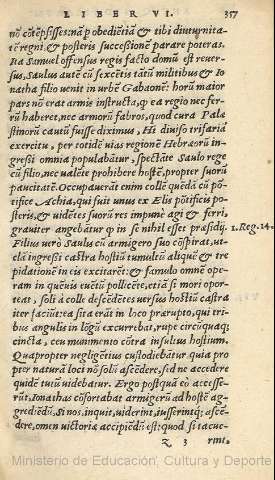 LIBER VI. 357
nõ cõtẽpsisses: nã p obediẽtiã & tibi diuturnita-
tẽ regni, & posteris successionẽ parare poteras.
Ra Samuel offensus regis facto domũ est reuer-
sus, Saulus autẽ cũ sexcẽtis tãtũ militibus & Io
natha filio uenit in urbẽ Gabaonẽ: horũ maior
pars nõ erat armis instructa, q̃ ea regio nec fer-
rũ haberet, nec armorũ fabros, quod cura Pala
stinorũ cautũ fuisse diximus, Hi diuiso trifariã
exercitu, per totidẽ uias regionẽ Hebræorũ in-
gressi omnia populabãtur, spectãte Saulo rege
cũ filio, nec ualẽte prohibere hostẽ, propter suorũ
paucitatẽ. Occupauerãt enim collẽ quẽdã cũ põ-
tifice Achia, qui fuit unus ex Elis põtificis po-
steris, & uidẽtes suorũ res impunè agi & ferri,
grauiter angebãtur q̃ in se nihil esset præsidij.
1. Reg. 14.
Filius uerò Saulus cũ armigero suo cõspirat, ut
clã ingressi castra hostiũ tumultũ aliquẽ & tre
pidationẽ in eis excitarẽt: & famulo omnẽ ope-
ram in quẽuis euẽtũ pollicẽte, etiã si mori opor-
teat, soli à colle descẽdẽtes uersus hostiũ castra
iter faciũt: ea sita erãt in loco prærupto, qui tri
bus angulis in lõgũ excurrebat, rupe circũquaq;
cincta, ceu munimento cõtra insultus hostium.
Quapropter negligẽtius custodiebãtur quia pro
pter naturã loci nõ soli ascẽdere, sed ne accedere
quidẽ tutũ uidebatur. Ergo postquã eò accesse-
rũt, Ionathas cõfortabat armigerũ ad hostẽ ag-
grediẽdũ, Si nos, inquit, uiderint, iusserintq; ascẽ-
dere, omen uictoriæ accipiẽdũ est: quod si tacue
z 3 rint
Ministerio de Educación, Cultura y Deporte